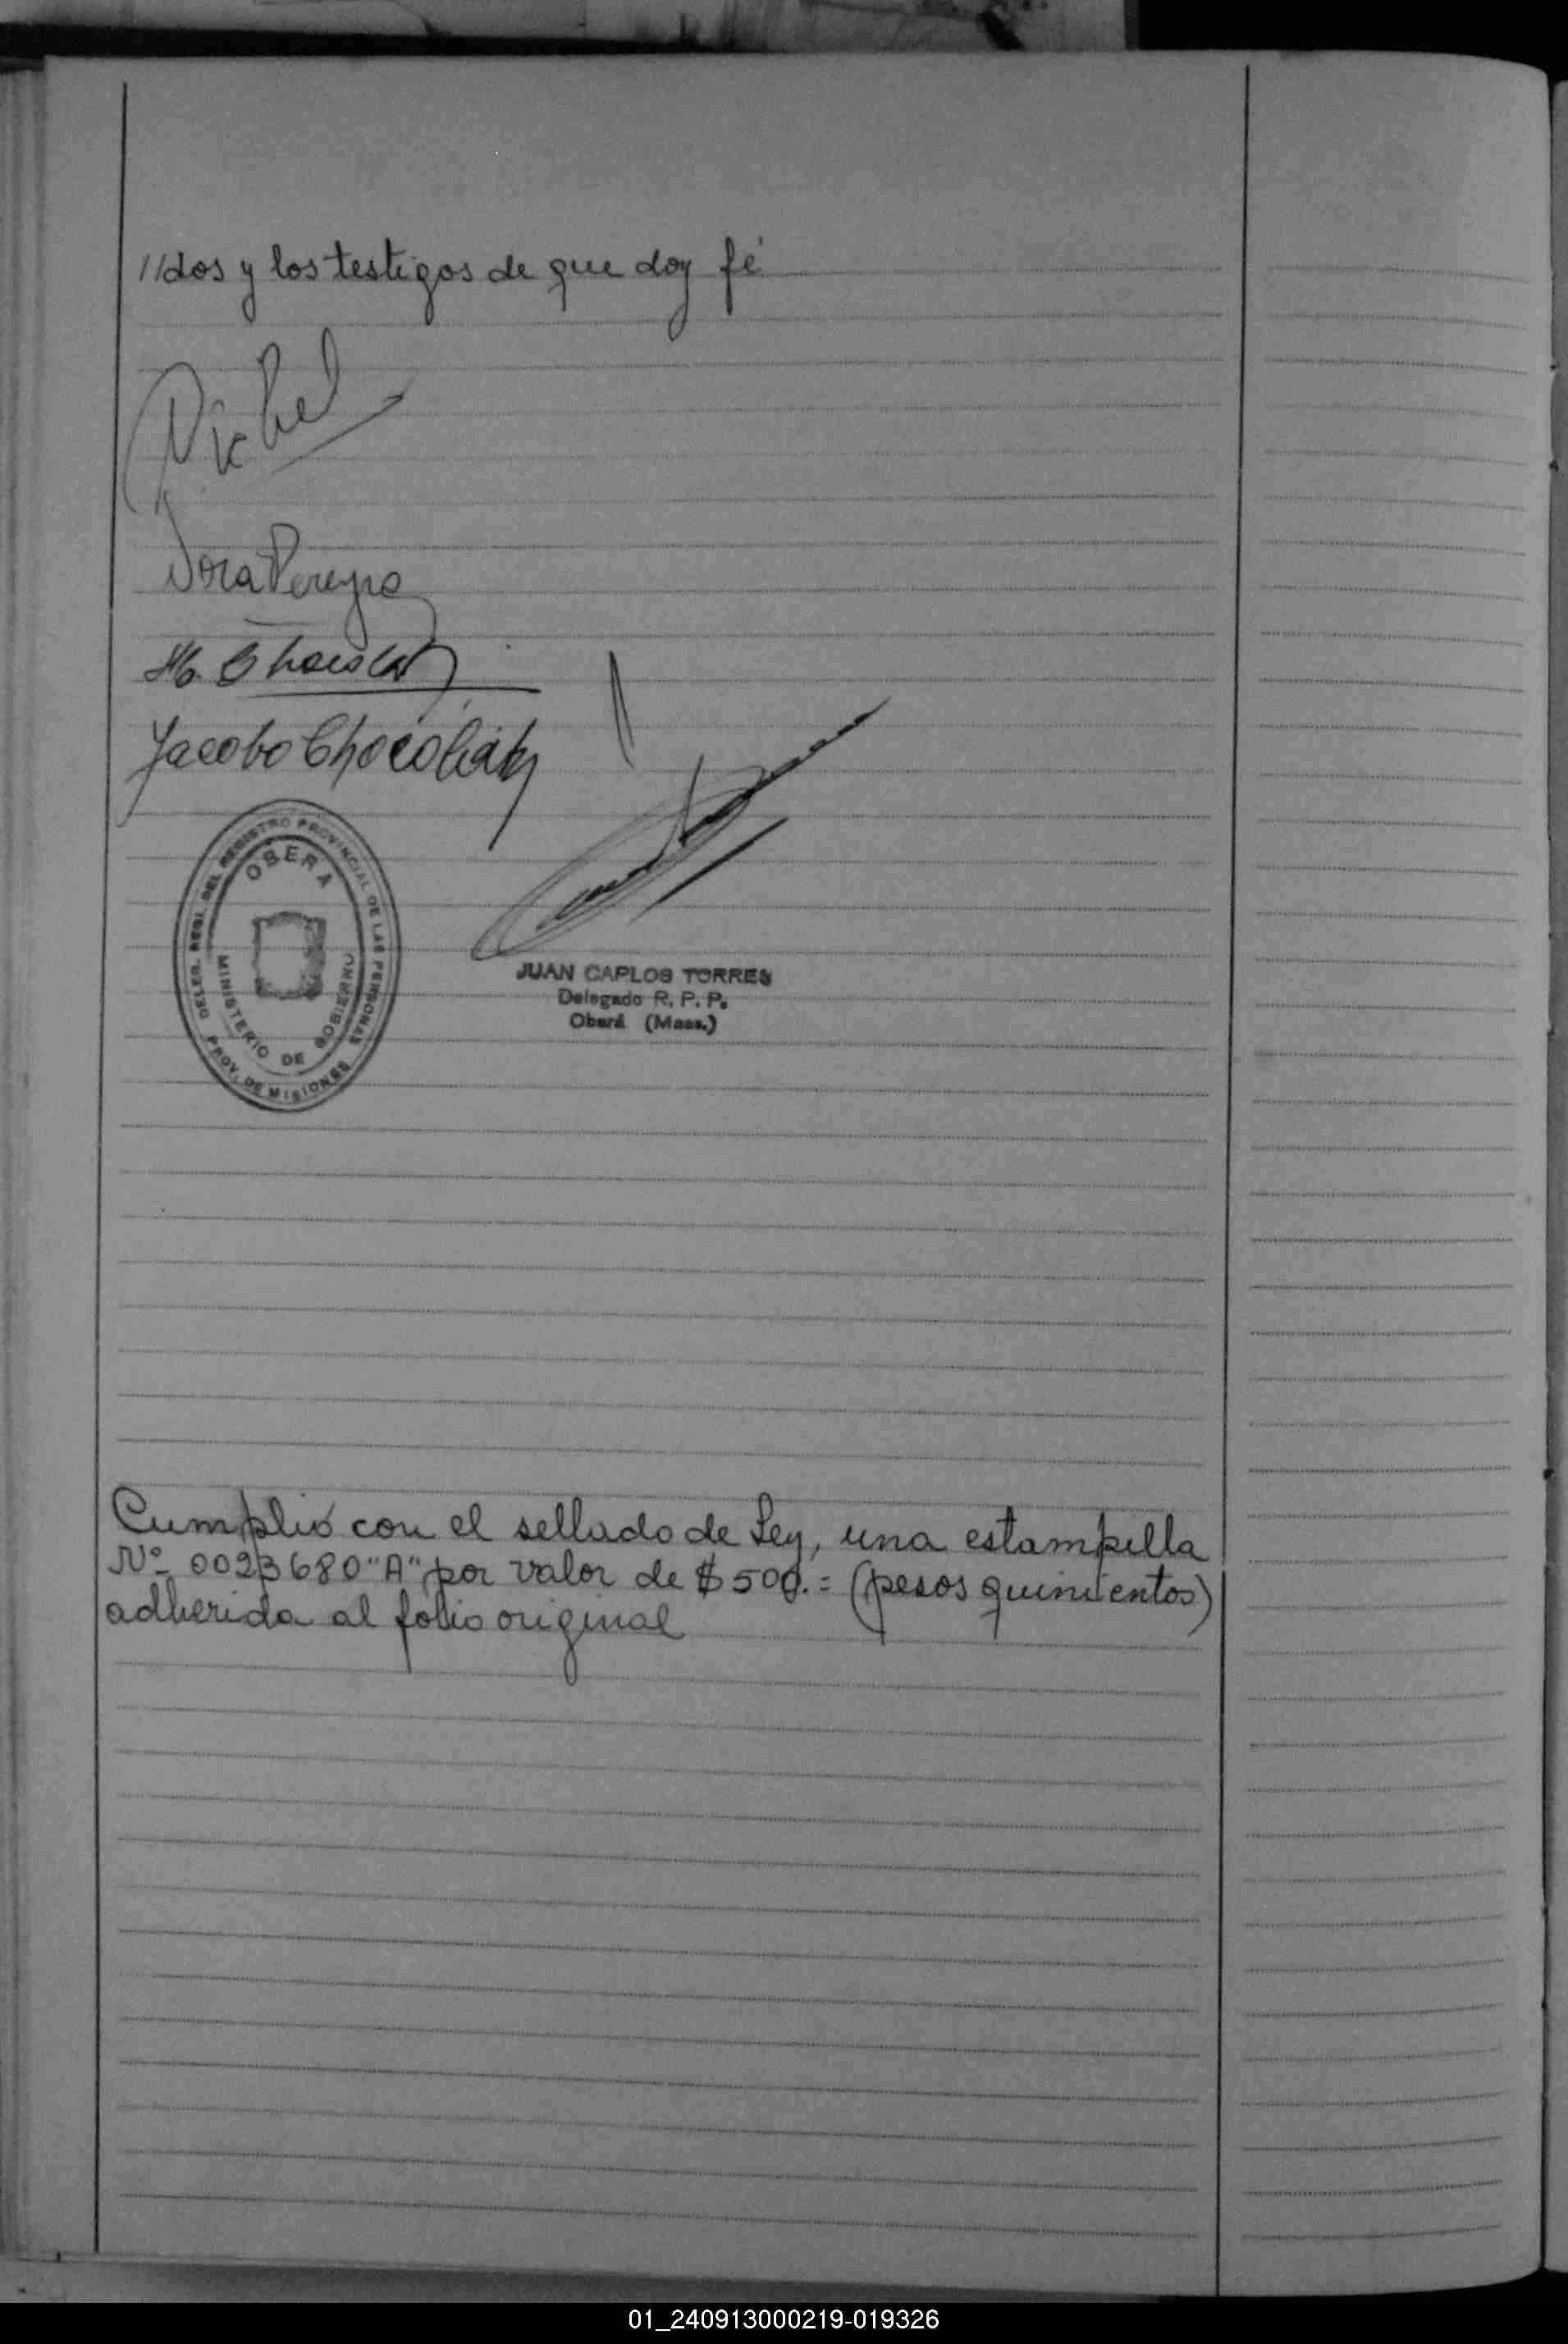 //dos y los testigos de que doy fé
Dora Pereyra
Jacobo Chocobar
DELEG. REGL. DEL REGISTRO PROVINCIAL DE LAS PERSONAS
OBERA
MINISTERIO DE GOBIERNO
PROV. DE MISIONES
JUAN CARLOS TORRES
Delegado R. P. P.
Oberá (Mnes.)
Cumplió con el sellado de Ley, una estampilla
Nº 0023680 "A" por valor de $ 500.= (pesos quinientos)
adherida al folio original
01_240913000219-019326